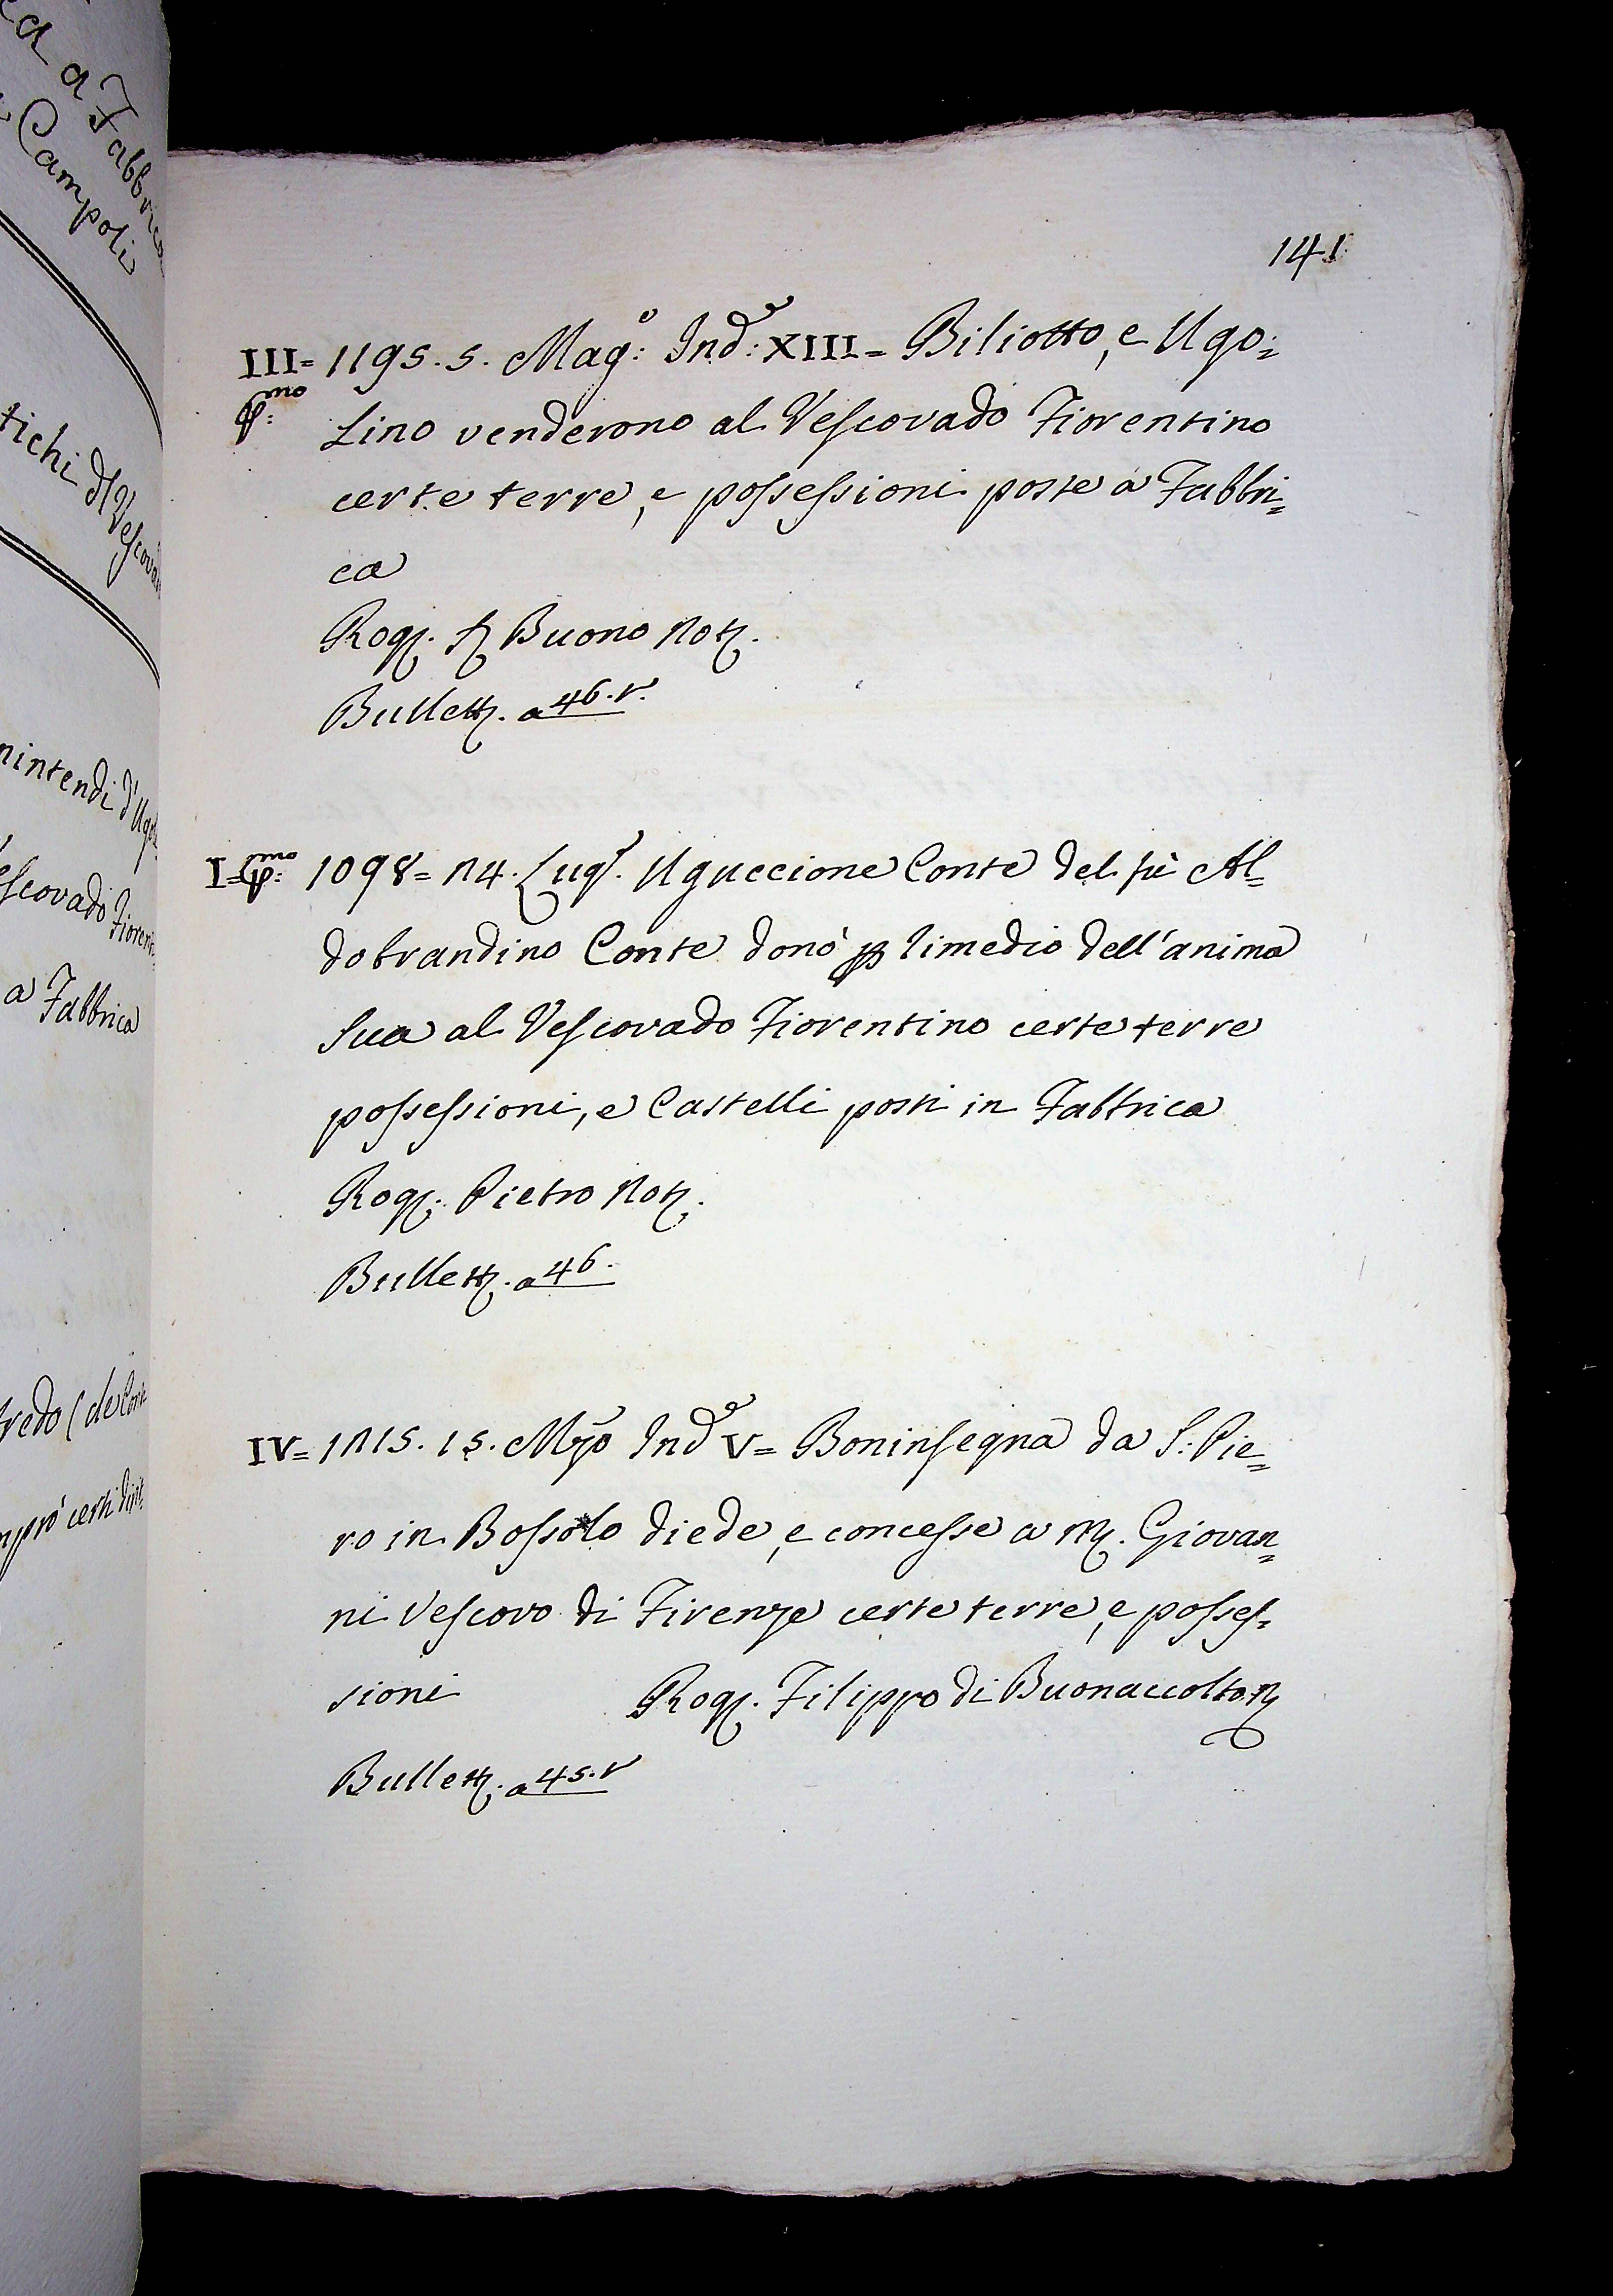 ca a Fabbrica
Campoli
tichi d Vescova
nintendi d'Ugo
escovado Fioren
a Fabbrica
redo (de Con
mprò certi
141
III= 1195. 5. Mag:o Ind:e XIII= Biliotto, e Ugo=
p:mo lino venderono al Vescovado Fiorentino
certe terre, e possessioni poste a Fabbri=
ca
Rog. Buono Not.
Bullett. a 46. v.
I= p:mo 1098= 24. Lug. Uguccione Conte del fù Al=
dobrandino Conte donò p rimedio dell'anima
sua al Vescovado Fiorentino certe terre
possessioni, e Castelli posti in Fabbrica
Rog. Pietro Not.
Bullett. a 46.
IV= 1215. 15. Mzo Ind.e V= Boninsegna da S: Pie=
ro in Bossolo diede, e concesse a M. Giovan=
ni Vescovo di Firenze certe terre, e posses=
sioni Rog. Filippo di Buonaccolto N
Bullett. a 45. v